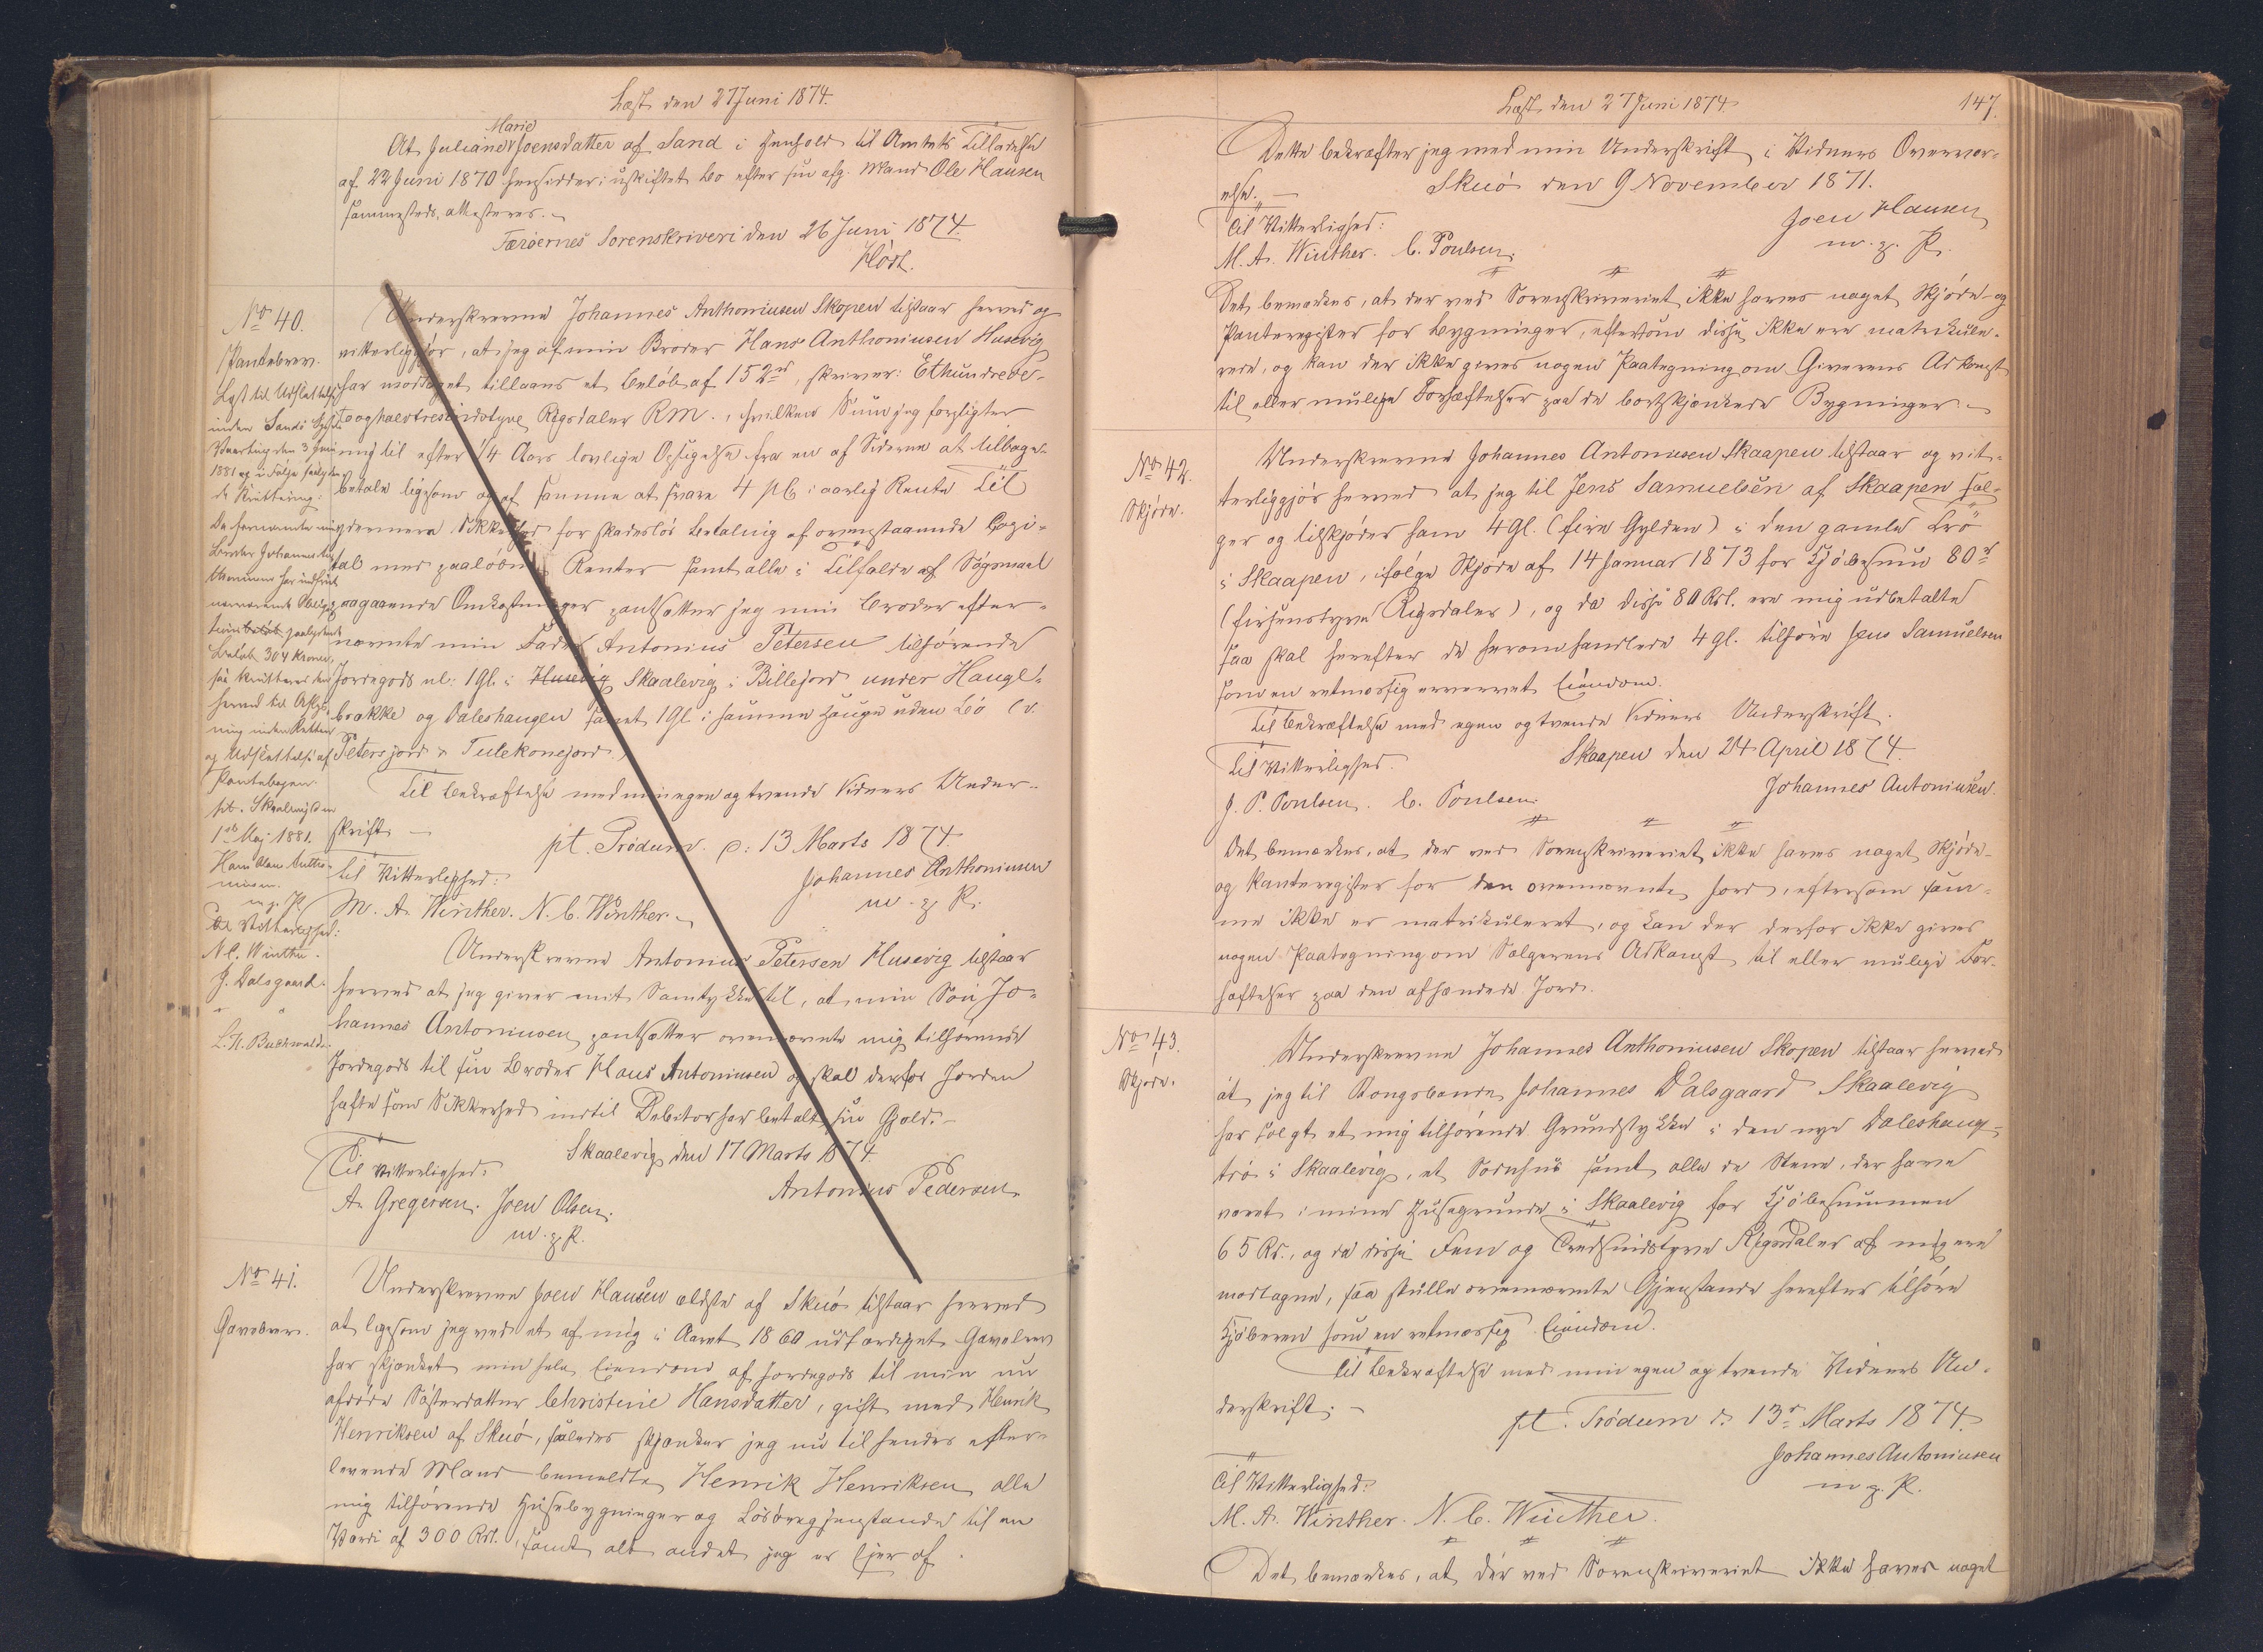 Læst den 27 Juni 1874.
At Juliane Marie Joensdatter af Sand i Henhold til Amtets Tilladelse
af 22 Juni 1870 hensidder i uskiftet Bo efter sin afg. Mand Ole Hansen
sammesteds, attesteres.
Færøernes Sorenskriveri den 26 Juni 1874.
Høst.
No 40.
Pantebrev.
Underskrevne Johannes Anthoniusen Skopen tilstaar herved og
vitterliggjør, at jeg af min Broder Hans Anthoniusen Husevig
har modtaget tillaans et Beløb af 152 rd, skriver: Ethundrede-
tooghalvtresindstyve Rigsdaler RM., hvilken Sum jeg forpligter
mig til efter 1/4 Aars lovlige Opsigelse fra en af Siderne at tilbage-
betale ligesom og af samme at svare 4 pCt i aarlig Rente. Til
ydermere Sikkerhed for skadesløs Betaling af ovenstaaende Capi-
tal med paaløbne Renter samt alle i Tilfælde af Søgsmaal
paagaaende Omkostninger pantsætter jeg min Broder efter-
nævnte min Fader Antonius Petersen tilhørende
Jordegods nl: 1 Gl. i Husevig Skaalevig i Billejord under Haugl-
brække og Daleshaugen samt 1 Gl i samme Hauge uden Bø
Petersjord & Tulekonejord.
Til Bekræftelse med min egen og tvende Vidners Under-
skrift.
pt. Trødum d: 13 Marts 1874.
Johannes Anthoniusen
m. p. P.
Til Vitterlighed:
M. A. Winther. N. C. Winther.
Underskrevne Antonius Petersen Husevig tilstaar
herved at jeg giver mit Samtykke til, at min Søn Jo-
hannes Antoniusen pantsætter ovennævnte mig tilhørende
Jordegods til sin Broder Hans Antoniusen og skal derfor Jorden
hæfte som Sikkerhed indtil Debitor har betalt sin Gjæld.
Skaalevig den 17 Marts 1874.
Antonius Pedersen.
Til Vitterlighed:
A. Gregersen. Joen Olsen.
m. p. P.
Lyst til Udslettelse
inden Sands Syssels
Vaarting den 3 Juni
1881 og i Følge
de Kvittering:
Da fornævnte min
Broder Johannes An-
thoniusen har indfriet
nærværende Obliga-
tions paalydende
Beløb 304 Kroner,
saa kvitteres den
herved til Aflys-
ning inden Retten
og Udslettelse af
Pantebogen.
pt. Skaalevig den
1ste Maj 1881.
Hans Antho-
niusen.
m. p. P.
Til Vitterlighed:
N. C. Winther.
J. Dalsgaard.
L. H. Buchwaldt.
No 41.
Gavebrev.
Underskrevne Joen Hansen ældste af Skuø tilstaar herved
at ligesom jeg ved et af mig i Aaret 1860 udfærdiget Gavebrev
har skjænket min hele Eiendom af Jordegods til min nu
afdøde Søsterdatter Christine Hansdatter, gift med Henrik
Henriksen af Skuø, saaledes skjænker jeg nu til hendes efter-
levende Mand bemeldte Henrik Henriksen alle
mig tilhørende Husebygninger og Løsøregjenstande til en
Værdi af 300 Rd., samt alt andet jeg er Ejer af.
Læst den 27 Juni 1874
147.
Dette bekræfter jeg med min Underskrift i Vidners Overvær-
else.
Skuø den 9 November 1871.
Joen Hansen
m. p. P.
Til Vitterlighed:
M. A. Winther. C. Poulsen.
Det bemærkes, at der ved Sorenskriveriet ikke haves noget Skjøde- og
Panteregister for Bygninger, eftersom disse ikke ere matrikule-
rede, og kan der ikke gives nogen Paategning om Giverens Adkomst
til eller mulige Forhæftelser paa de bortskjænkede Bygninger.
No 42.
Skjøde.
Underskrevne Johannes Antoniusen Skaapen tilstaar og vit-
terliggjør herved at jeg til Jens Samuelsen af Skaapen sæl-
ger og tilskjøder ham 4 Gl. (fire Gylden) i den gamle Trø
i Skaapen, ifølge Skjøde af 14 Januar 1873 for Kjøbesum 80 rd
(firsenstyve Rigsdaler), og da disse 80 Rd. ere mig udbetalte
saa skal herefter de heromhandlede 4 Gl. tilhøre Jens Samuelsen
som en retmæssig erhvervet Eiendom.
Til Bekræftelse med egen og tvende Vidners Underskrift.
Skaapen den 24 April 1874.
Johannes Antoniusen.
Til Vitterlighed.
J. P. Poulsen. C. Poulsen.
Det bemærkes, at der ved Sorenskriveriet ikke haves noget Skjøde-
og Panteregister for den ovennævnte Jord, eftersom sam-
me ikke er matrikuleret, og kan der derfor ikke gives
nogen Paategning om Sælgerens Adkomst til eller mulige For-
hæftelser paa den afhændede Jord.
No 43.
Skjøde.
Underskrevne Johannes Anthoniusen Skopen tilstaar herved
at jeg til Kongsbonde Johannes Dalsgaard Skaalevig
har solgt et mig tilhørende Grundstykke i den nye Daleshaug-
trø i Skaalevig, et Sornhus samt alle de Stene, der have
været i mine Husegrunde i Skaalevig for Kjøbesummen
65 Rd., og da disse Fem og Tredsindstyve Rigsdaler af mig ere
modtagne, saa skulle ovennævnte Gjenstande herefter tilhøre
Kjøberen som en retmæssig Eiendom.
Til Bekræftelse med min egen og tvende Vidners Un-
derskrift.
pt. Trødum d. 13 Marts 1874
Johannes Antoniusen
m. p. P.
Til Vitterlighed:
M. A. Winther. N. C. Winther.
Det bemærkes, at der ved Sorenskriveriet ikke haves noget